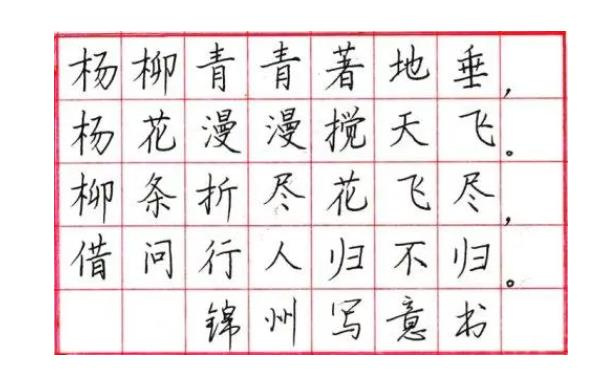 杨柳青青著地垂，
杨花漫漫搅天飞。
柳条折尽花飞尽，
借问行人归不归。
锦州写意书